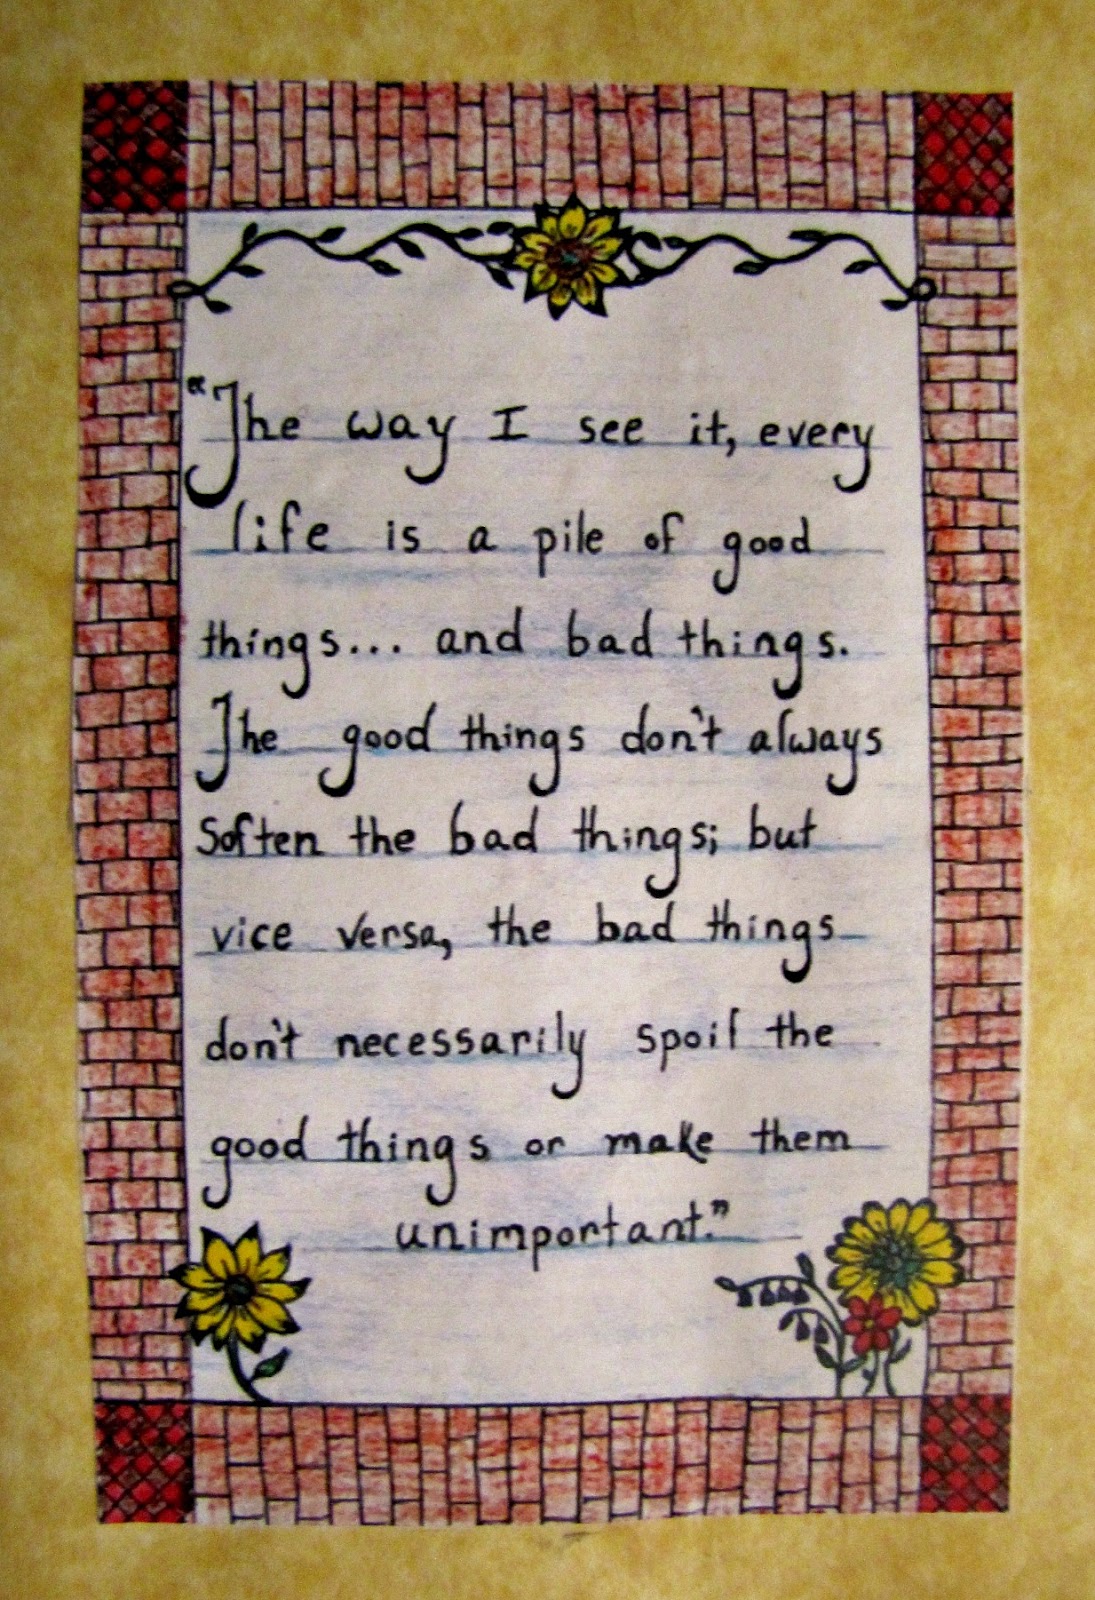 "The way I see it, every
life is a pile of good
things... and bad things.
The good things don't always
soften the bad things; but
vice versa, the bad things
don't necessarily spoil the
good things or make them
unimportant."